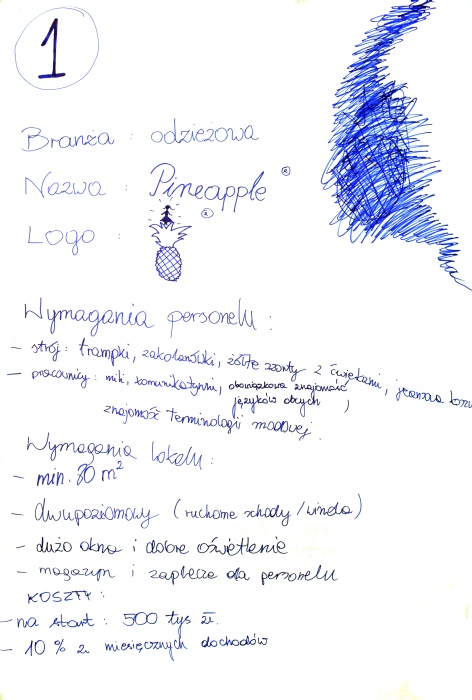 1
Branża : odzieżowa
Nazwa : Pineapple ®
Logo : ®
Wymagania personelu :
- strój: trampki, zakolanówki, żółte szorty z ćwiekami, jeansowa
- pracownicy: mili, komunikatywni, obowiązkowa znajomość
języków obcych,
znajomość terminologii modowej.
Wymagania lokalu :
- min. 80 m²
- dwupoziomowy (ruchome schody / winda)
- dużo okna i dobre oświetlenie
- magazyn i zaplecze dla personelu
KOSZTY :
- na start : 500 tys zł.
- 10 % z miesięcznych dochodów